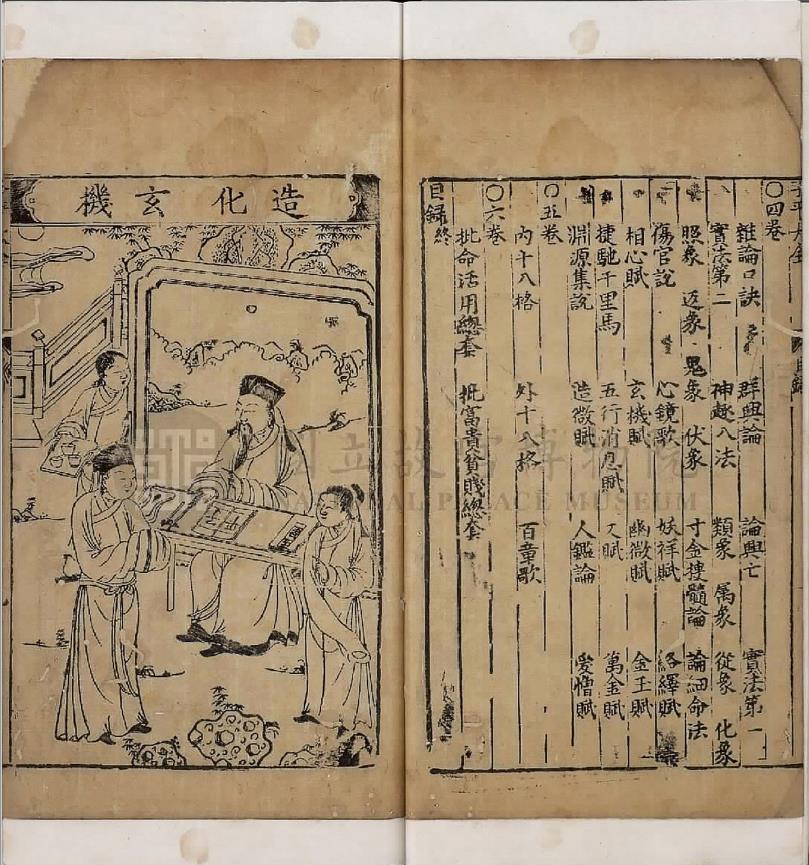 〇四卷
雜論口訣 群興論 論興亡 寶法第一
寶法第二 神趣八法 類象 属象 從象 化象
照象 返象 鬼象 伏象 寸金搜髓論 論細命法
傷官說 心鏡歌 妖祥賦 絡繹賦
相心賦 玄機賦 幽微賦 金玉賦
捷馳千里馬 五行消息賦 又賦 萬金賦
淵源集說 造微賦 人鑑論 愛憎賦
〇五卷
內十八格 外十八格 百章歌
〇六卷
批命活用總套 批富貴貧賤總套
目録終
造化玄機
國立故宮博物院
NATIONAL PALACE MUSEUM